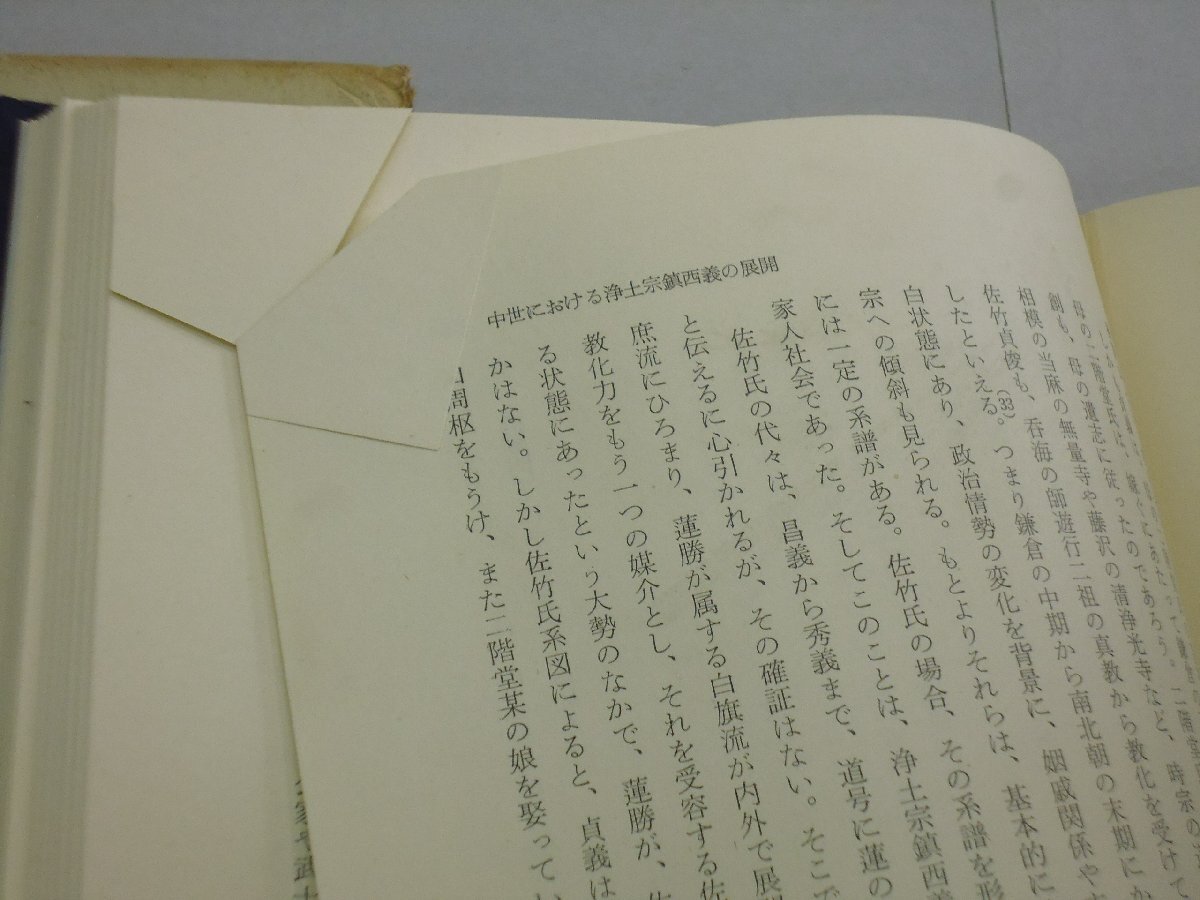 中世における浄土宗鎮西義の展開
母の二階堂氏は、
創も、母の遺志に従ったのであろう。
相模の当麻の無量寺や藤沢の清浄光寺など、時宗の
佐竹貞俊も、呑海の師遊行二祖の真教から教化を受けて
したといえる。(33)つまり鎌倉の中期から南北朝の末期にか
白状態にあり、政治情勢の変化を背景に、姻戚関係や
宗への傾斜も見られる。もとよりそれらは、基本的に
には一定の系譜がある。佐竹氏の場合、その系譜を形
家人社会であった。そしてこのことは、浄土宗鎮西義
佐竹氏の代々は、昌義から秀義まで、道号に蓮の
と伝えるに心引かれるが、その確証はない。そこで
庶流にひろまり、蓮勝が属する白旗流が内外で展
教化力をもう一つの媒介とし、それを受容する佐
る状態にあったという大勢のなかで、蓮勝が、
かはない。しかし佐竹氏系図によると、貞義は
周枢をもうけ、また二階堂某の娘を娶ってい